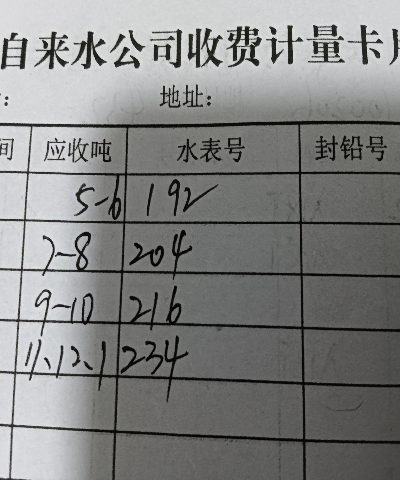 自来水公司收费计量卡
地址：
间 应收吨 水表号 封铅号
5-6 192
7-8 204
9-10 216
11、12、1 234